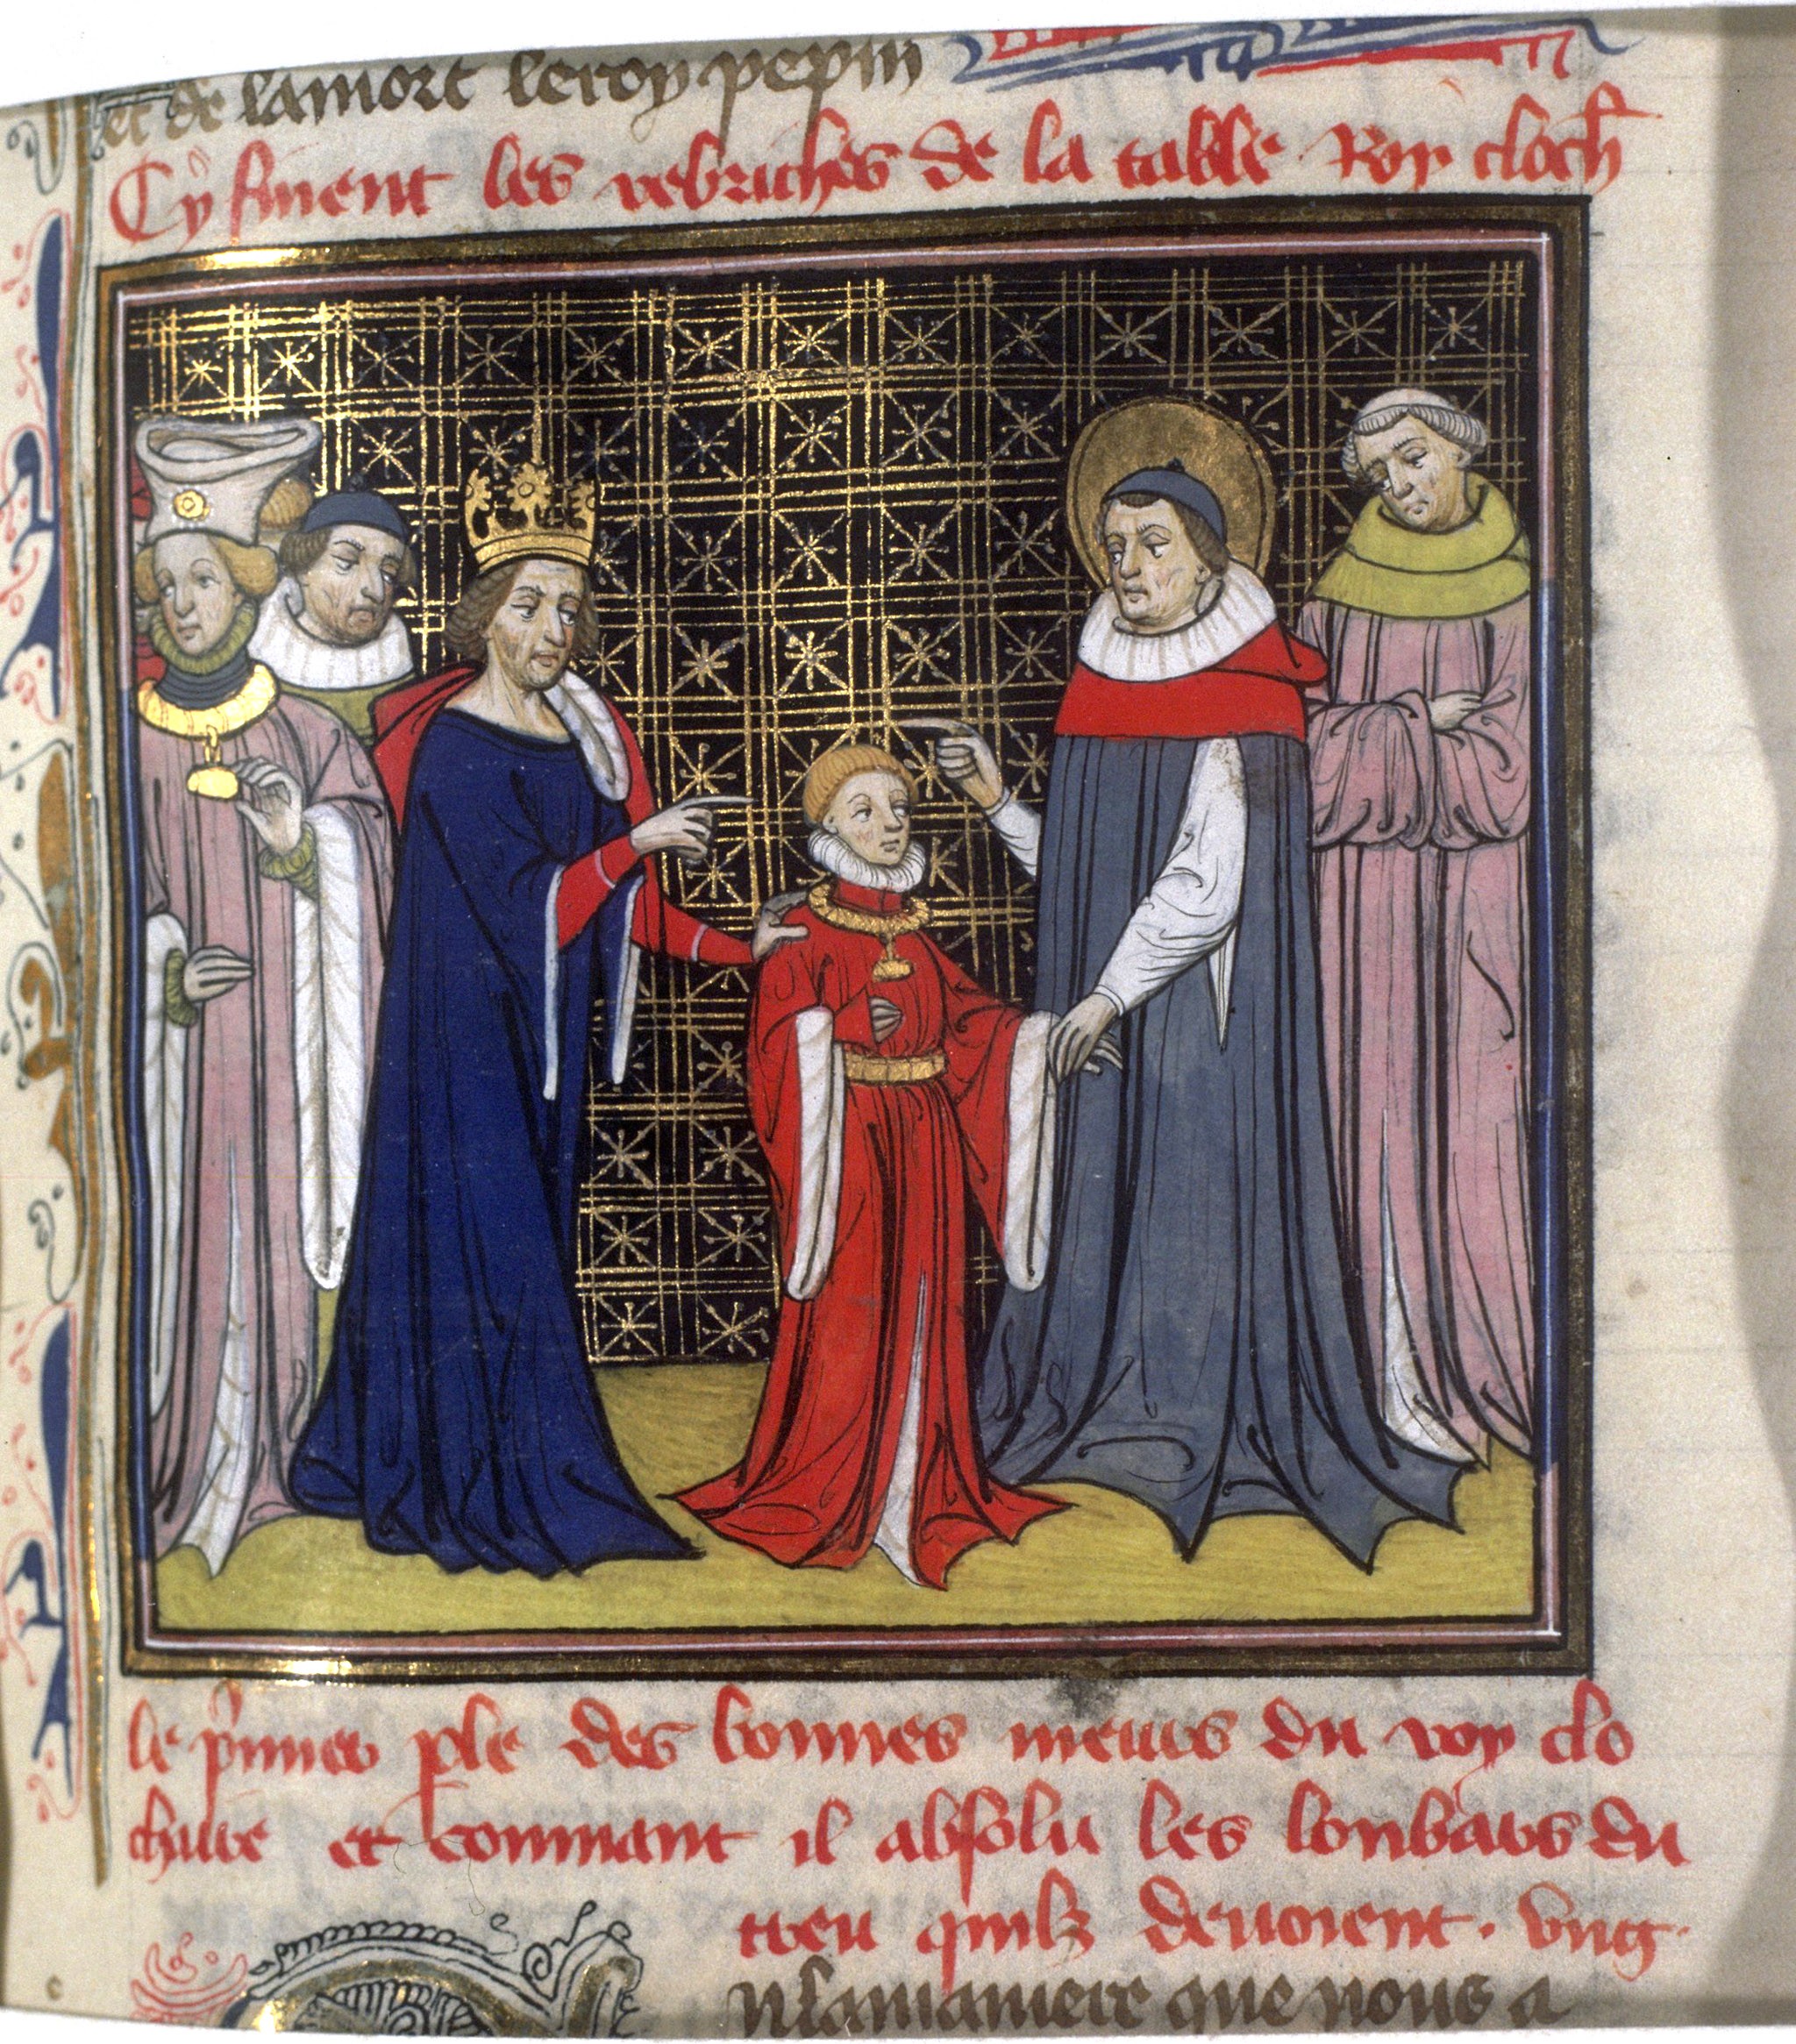 et de lamort leroy pepin
Cy finent les rebriches de la table Roy cloth
le pmier ple des bonnes meurs du roy clo
thaire et conmant il absolu les lonbars du
treu quilz devoient. Ung.
n lamaniere que nous a